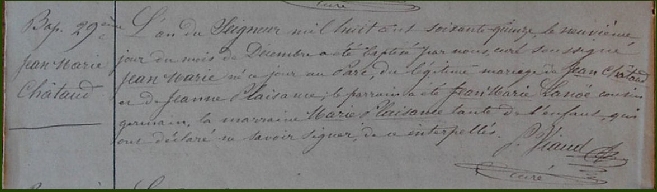 Curé
Bap. 29ème
Jean Marie
Châtaud
L'an du Seigneur mil huit cent soixante quinze le neuvième
jour du mois de Décembre a été baptisé par nous, curé soussigné
Jean Marie né ce jour au Parc, du légitime mariage de Jean Châtaud
et de Jeanne Plaisance; le parrain a été Jean Marie cousin
germain, la marraine Marie Plaisance tante de l'enfant, qui
ont déclaré ne savoir signer, de ce interpellés.
J. Viaud
Curé